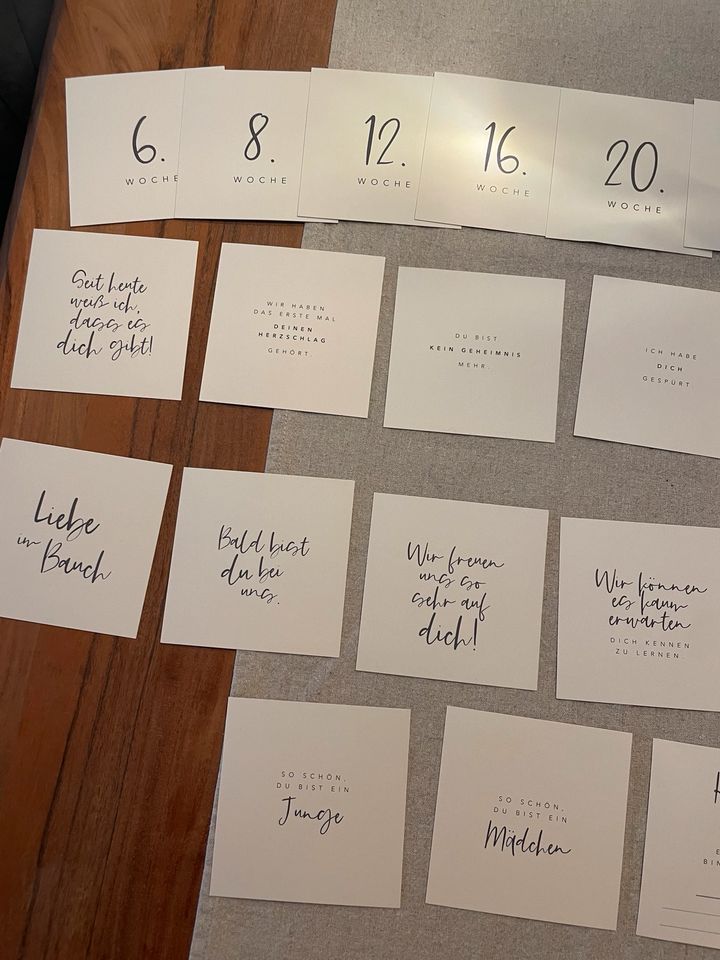 6.
WOCHE
8.
WOCHE
12.
WOCHE
16.
WOCHE
20.
WOCHE
Seit heute
weiß ich,
dass es
dich gibt!
WIR HABEN
DAS ERSTE MAL
DEINEN
HERZSCHLAG
GEHÖRT
DU BIST
KEIN GEHEIMNIS
MEHR.
ICH HABE
DICH
GESPÜRT
Liebe
im Bauch
Bald bist
du bei
uns.
Wir freuen
uns so
sehr auf
dich!
Wir können
es kaum
erwarten
DICH KENNEN
ZU LERNEN.
SO SCHÖN,
DU BIST EIN
Junge
SO SCHÖN,
DU BIST EIN
Mädchen